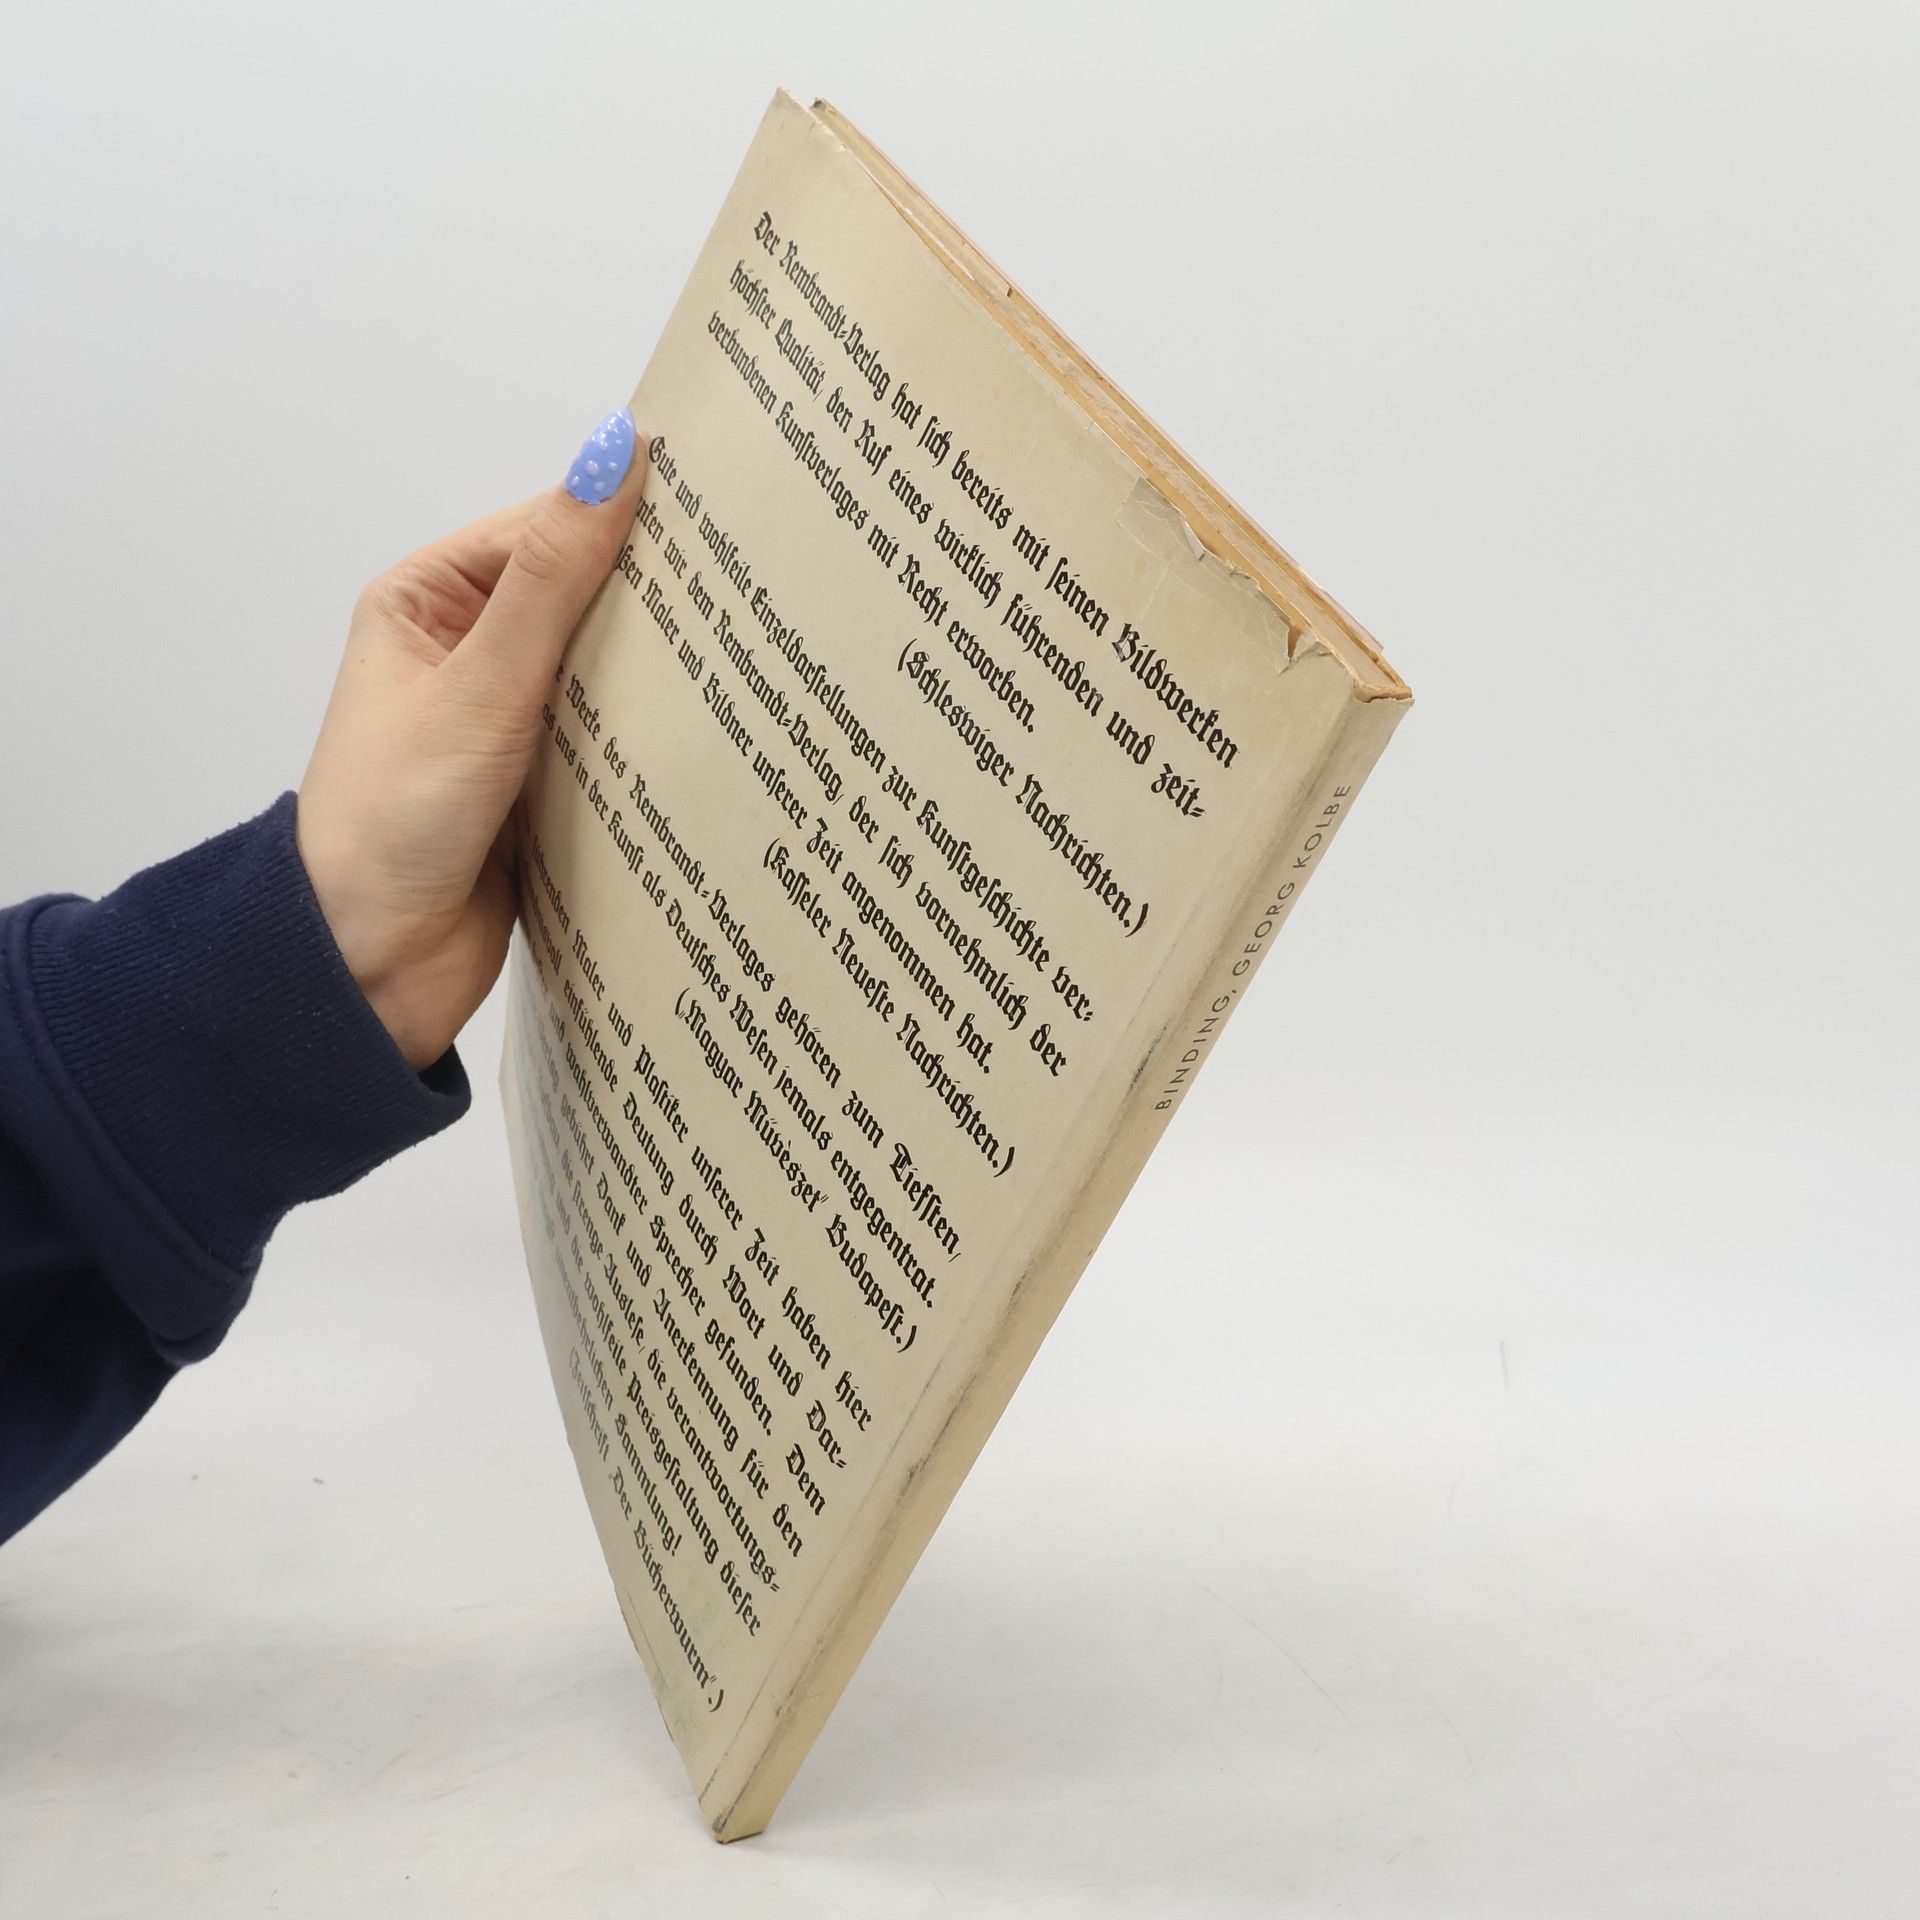 Der Rembrandt-Verlag hat sich bereits mit seinen Bildwerken
höchster Qualität, den Ruf eines wirklich führenden und zeit-
verbundenen Kunstverlages mit Recht erworben.
(Schleswiger Nachrichten.)
Gute und wohlfeile Einzeldarstellungen zur Kunstgeschichte ver-
wir dem Rembrandt-Verlag, der sich vornehmlich der
Maler und Bildner unserer Zeit angenommen hat.
(Kasseler Neueste Nachrichten.)
Werke des Rembrandt-Verlages gehören zum Tiefsten,
uns in der Kunst als Deutsches Wesen jemals entgegentrat.
(„Magyar Müvèszet" Budapest.)
führenden Maler und Plastiker unserer Zeit haben hier
einfühlende Deutung durch Wort und Dar-
und wahlverwandter Sprecher gefunden. Dem
gebührt Dank und Anerkennung für den
die strenge Auslese, die verantwortungs-
und die wohlfeile Preisgestaltung dieser
unentbehrlichen Sammlung!
(Zeitschrift „Der Bücherwurm".)
BINDING, GEORG KOLBE